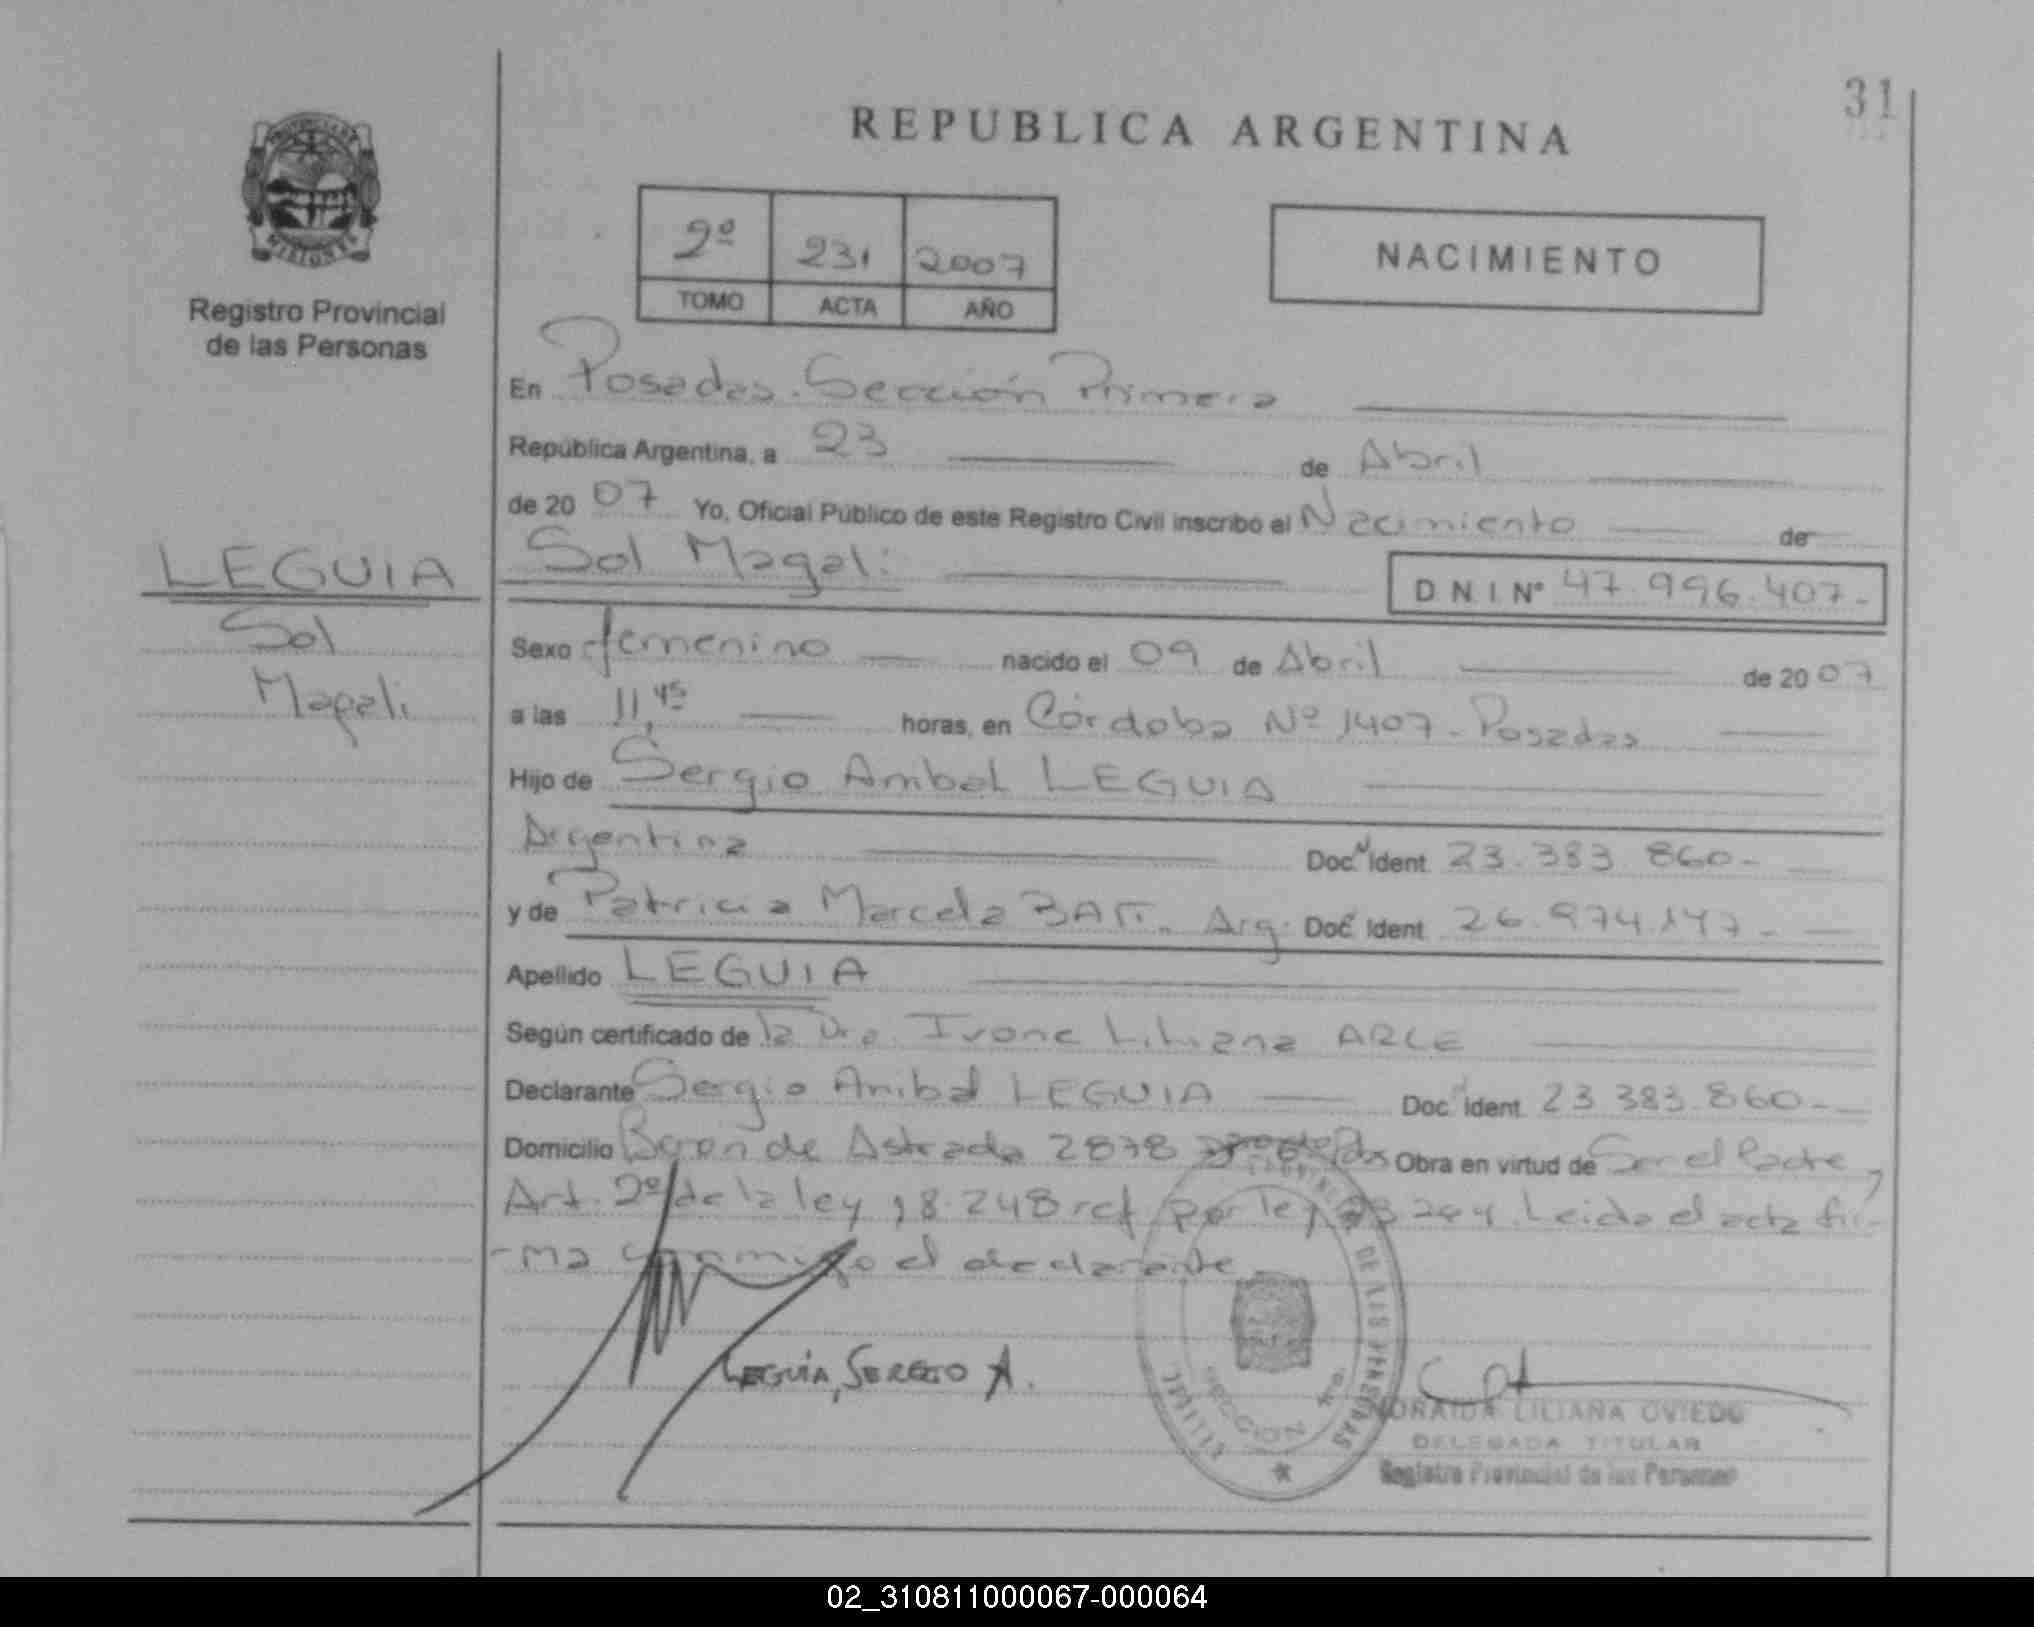 31
REPUBLICA ARGENTINA
PROVINCIA DE
MISIONES
Registro Provincial
de las Personas
2º 231 2007
TOMO ACTA AÑO
NACIMIENTO
En Posadas. Sección Primera
República Argentina, a 23 de Abril
de 2007 Yo, Oficial Público de este Registro Civil inscribo el Nacimiento de
LEGUIA
Sol
Magali
Sol Magali
D N I Nº 47.996.407-
Sexo femenino nacido el 09 de Abril de 2007
a las 11,45 horas, en Córdoba Nº 1407 - Posadas
Hijo de Sergio Anibal LEGUIA
Argentina Doc. Ident. 23.383.860-
y de Patricia Marcela Arg. Doc. Ident. 26.974.147-
Apellido LEGUIA
Según certificado de la Dra. Ivone Liliana ARCE
Declarante Sergio Anibal LEGUIA Doc. Ident. 23.383.860-
Domicilio de Astrada 2878 Pdas Obra en virtud de Ser el Padre,
Art. 2º de la ley 18.248 ref. por ley 23264. Leida el acta fir-
-ma conmigo el declarante
LEGUÍA, SERGIO A.
DE LAS PERSONAS
SECCION 1ra.
LILIANA OVIEDO
DELEGADA TITULAR
Registro Provincial de las Personas
02_310811000067-000064